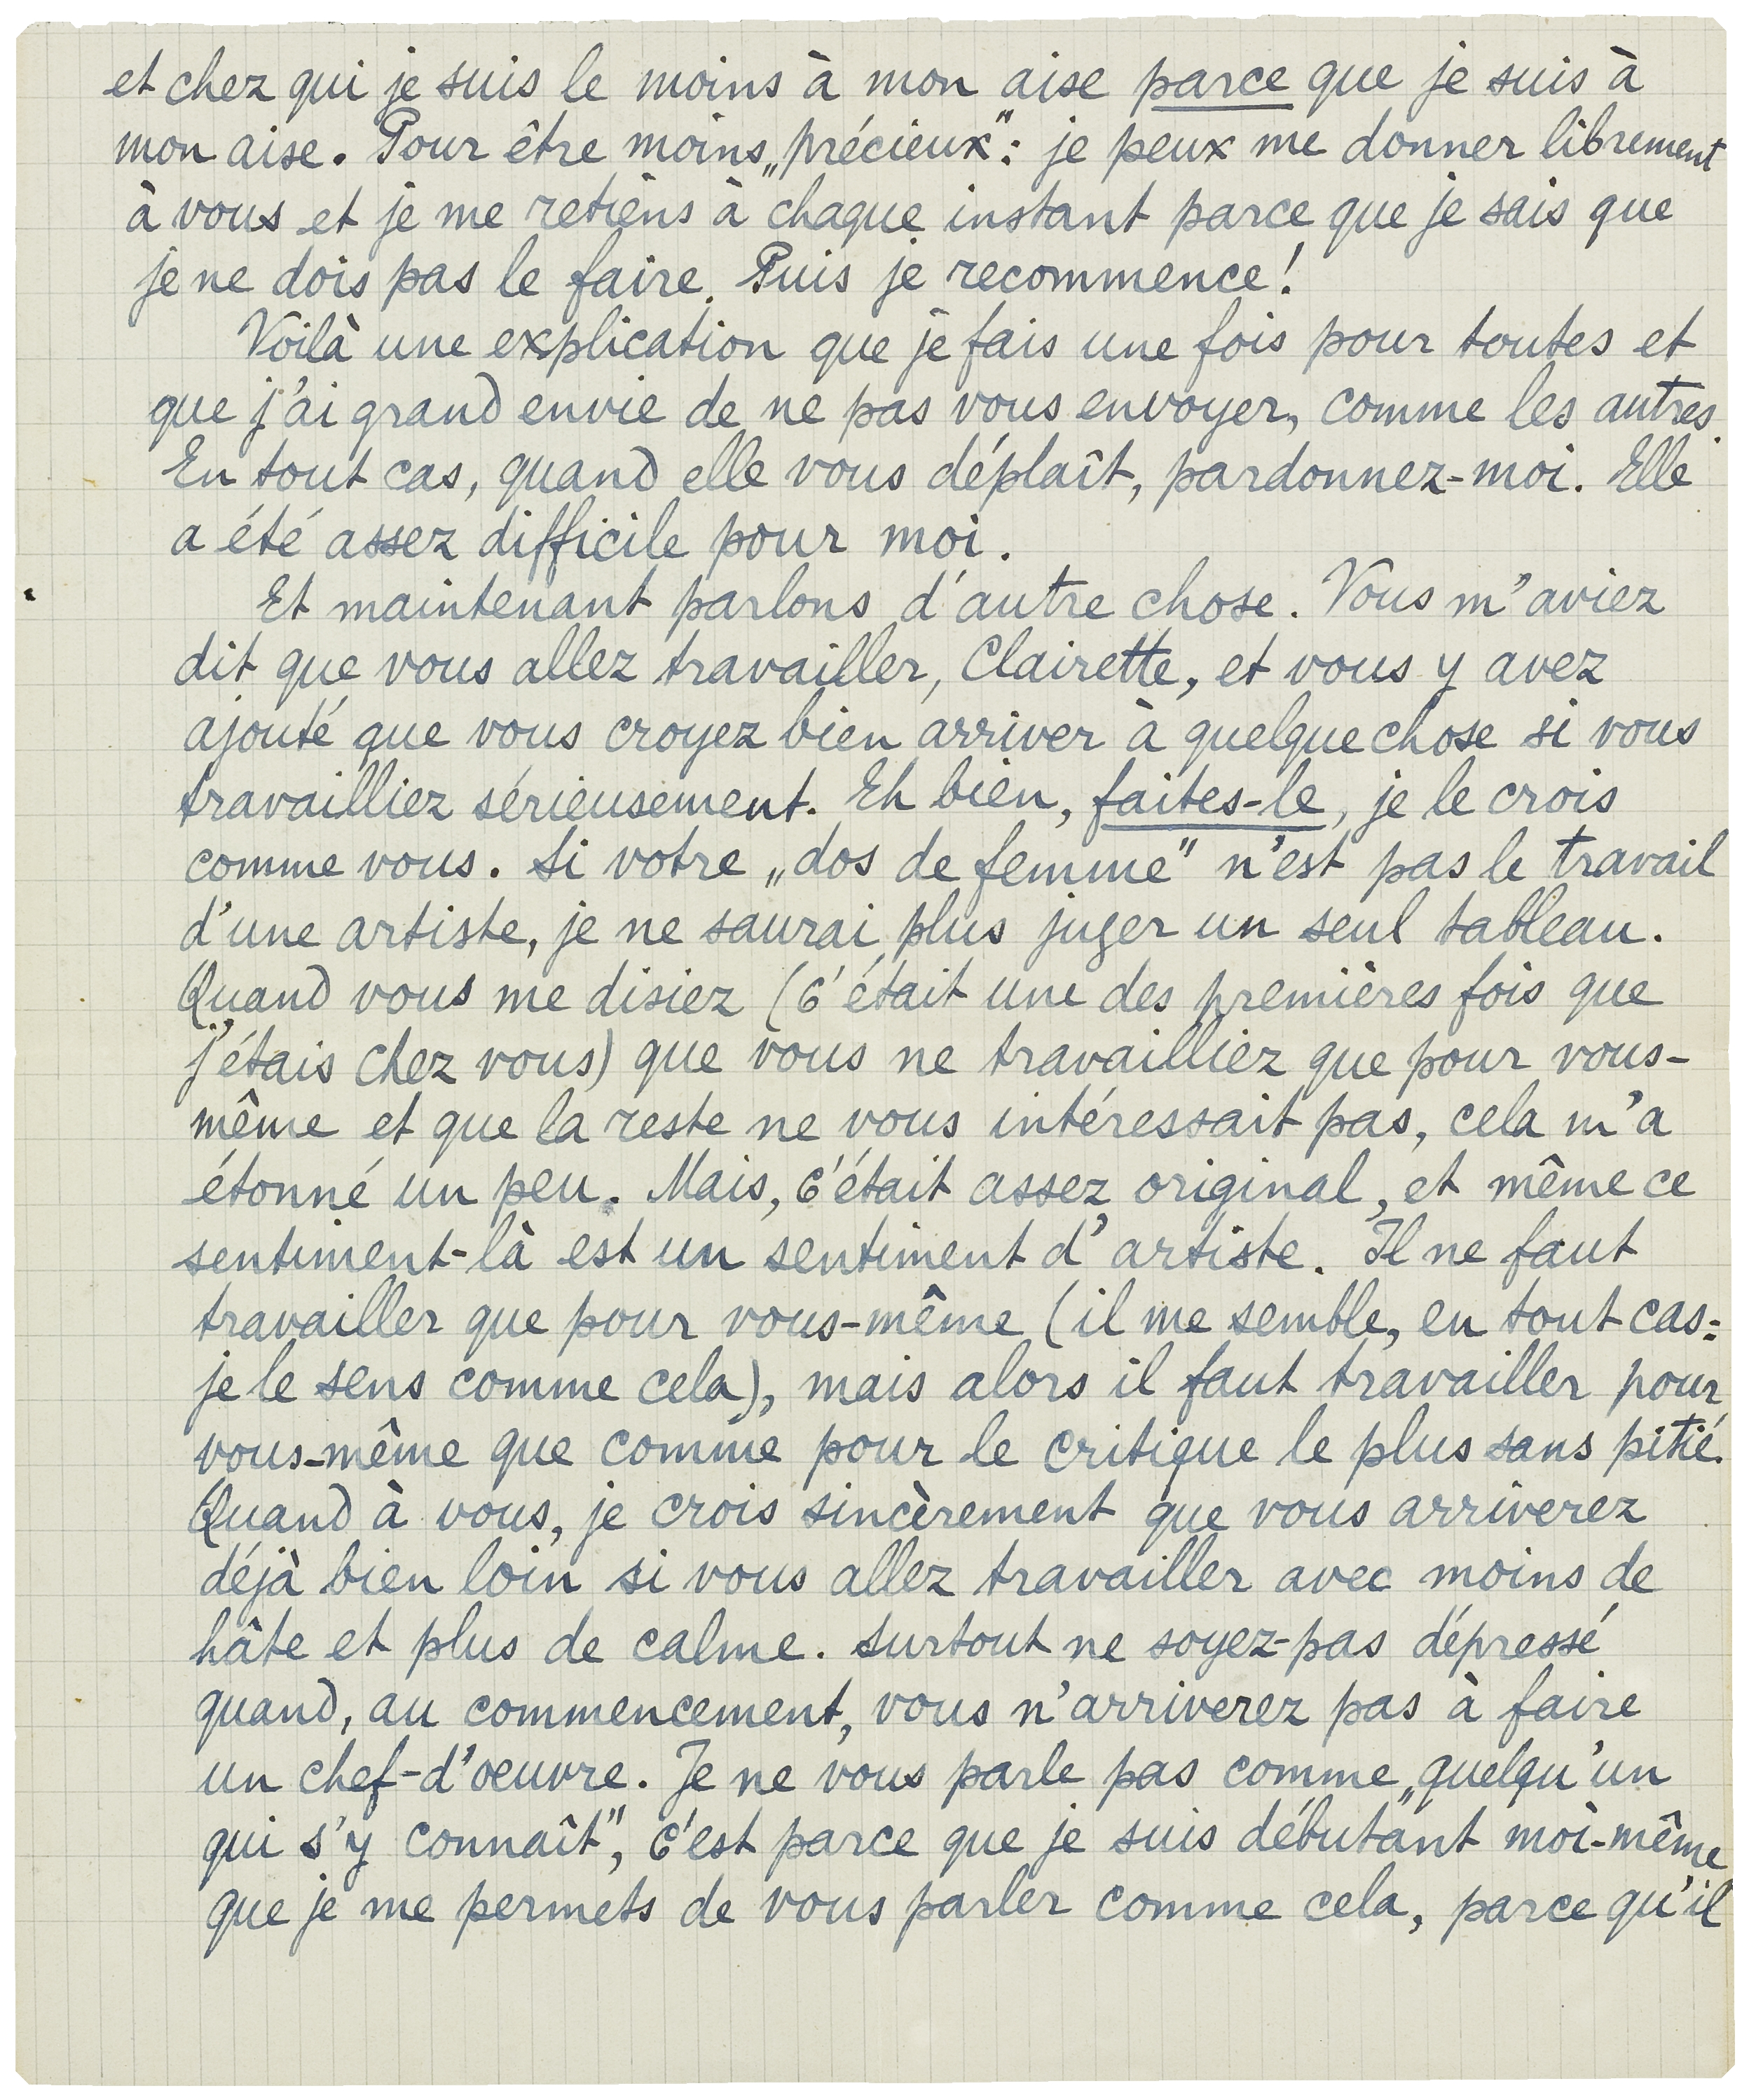 et chez qui je suis le moins à mon aise parce que je suis à
mon aise. Pour être moins „précieux“: je peux me donner librement
à vous et je me retiens à chaque instant parce que je sais que
je ne dois pas le faire. Puis je recommence!
Voilà une explication que je fais une fois pour toutes et
que j'ai grand envie de ne pas vous envoyer, comme les autres.
En tout cas, quand elle vous déplaît, pardonnez-moi. Elle
a été assez difficile pour moi.
Et maintenant parlons d'autre chose. Vous m'aviez
dit que vous allez travailler, Clairette, et vous y avez
ajouté que vous croyez bien arriver à quelque chose si vous
travailliez sérieusement. Eh bien, faites-le, je le crois
comme vous. Si votre „dos de femme“ n'est pas le travail
d'une artiste, je ne saurai plus juger un seul tableau.
Quand vous me disiez (c'était une des premières fois que
j'étais chez vous) que vous ne travailliez que pour vous-
même et que la reste ne vous intéressait pas, cela m'a
étonné un peu. Mais, c'était assez original, et même ce
sentiment-là est un sentiment d'artiste. Il ne faut
travailler que pour vous-même (il me semble, en tout cas:
je le sens comme cela), mais alors il faut travailler pour
vous-même que comme pour le critique le plus sans pitié.
Quand à vous, je crois sincèrement que vous arriverez
déjà bien loin si vous allez travailler avec moins de
hâte et plus de calme. Surtout ne soyez-pas dépressé
quand, au commencement, vous n'arriverez pas à faire
un chef-d'oeuvre. Je ne vous parle pas comme „quelqu'un
qui s'y connaît“, c'est parce que je suis débutant moi-même
que je me permets de vous parler comme cela, parce qu'il